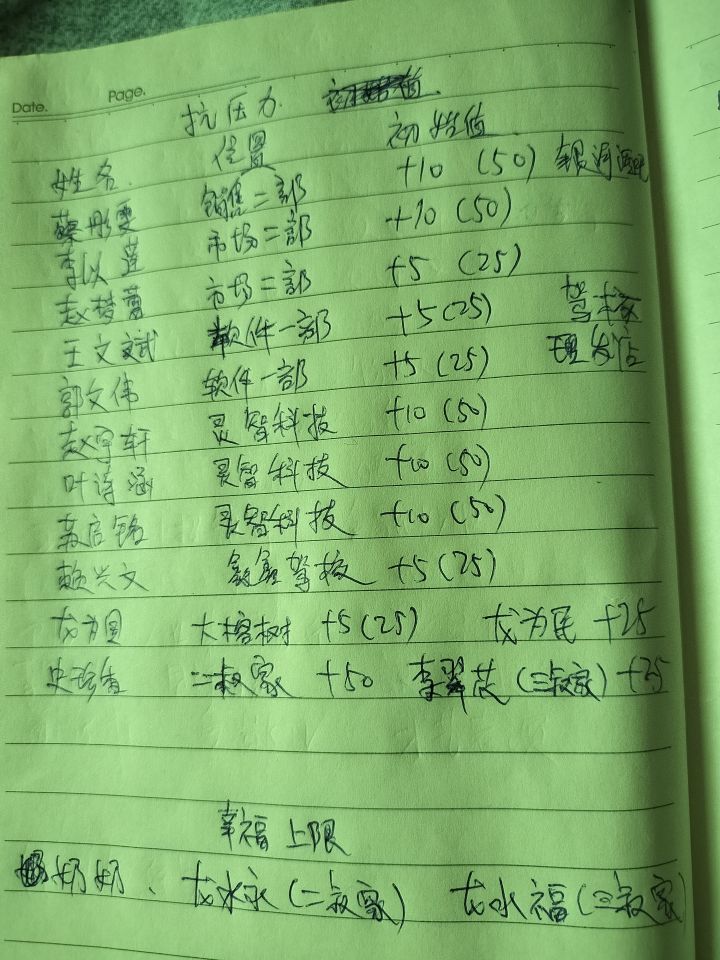 Date. Page.
抗压力.
姓名. 位置 初始值
蔡彤雯 销售二部 +10 (50)
李以莲 市场二部 +10 (50)
赵梦蕾 市场二部 +5 (25)
王文斌 软件一部 +5 (25) 驾校
郭文伟 软件一部 +5 (25) 理发店
赵宇轩 灵智科技 +10 (50)
叶诗涵 灵智科技 +10 (50)
启铭 灵智科技 +10 (50)
赖兴文 驾校 +5 (25)
龙为 大榕树 +5 (25) 龙为民 +25
史珍香 二叔家 +50 李翠花 (三叔家) +25
幸福上限
奶奶、龙水永 (二叔家) 龙水福 (三叔家)